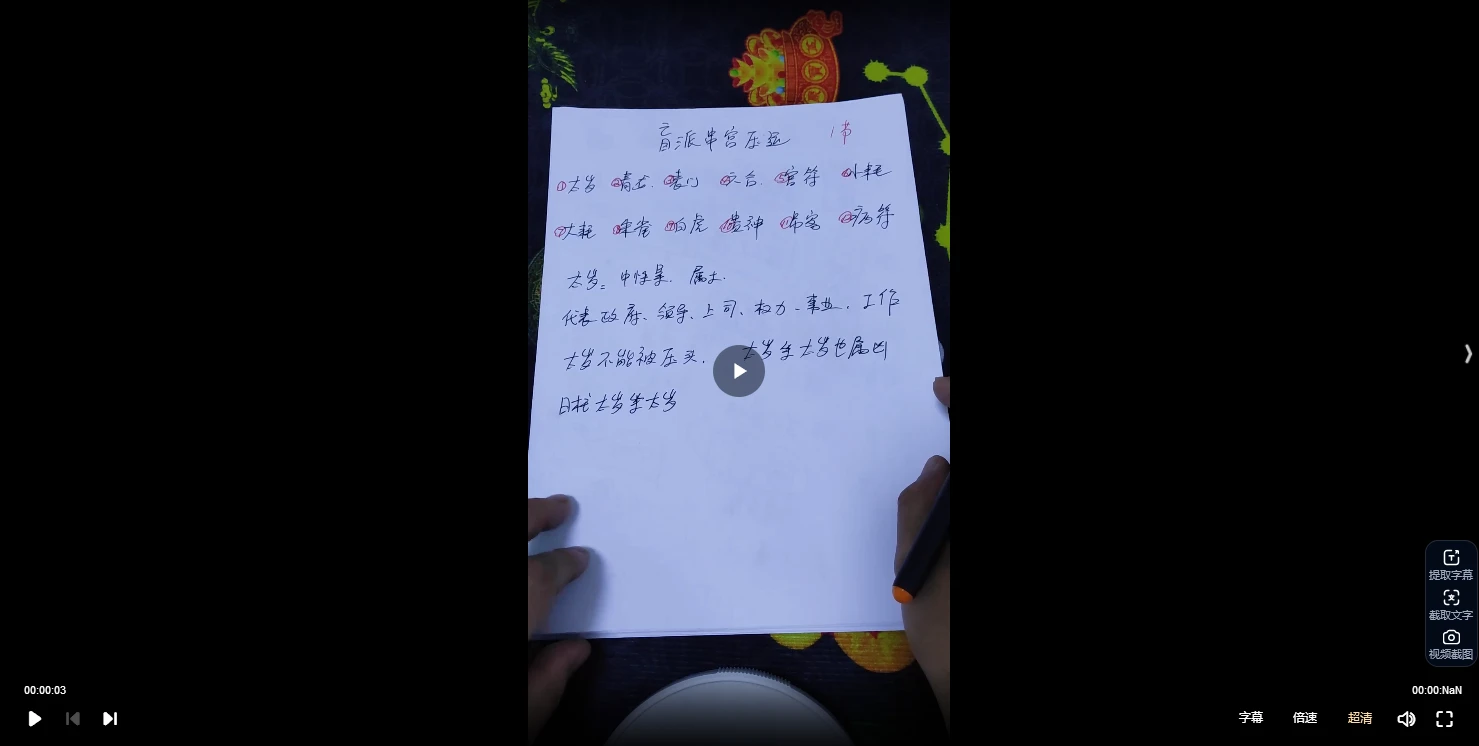 盲派串宫压运 1节
①太岁 ②青龙. ③丧门 ④六合. ⑤官符 ⑥小耗
⑦大耗 ⑧朱雀 ⑨白虎 ⑩贵神 ⑪吊客 ⑫病符
太岁: 中性星. 属土.
代表政府、领导、上司、权力、事业、工作
太岁不能被压头. 太岁坐太岁也属凶
日柱太岁坐太岁
提取字幕
截取文字
视频截图
00:00:03
00:00:NaN
字幕 倍速 超清